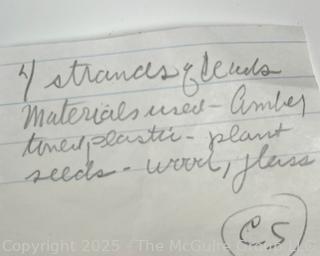 4 strands of beads
Materials used - Amber
toned plastic - plant
seeds - wood, glass
C5
Copyright 2025 - The McGuire Group LLC